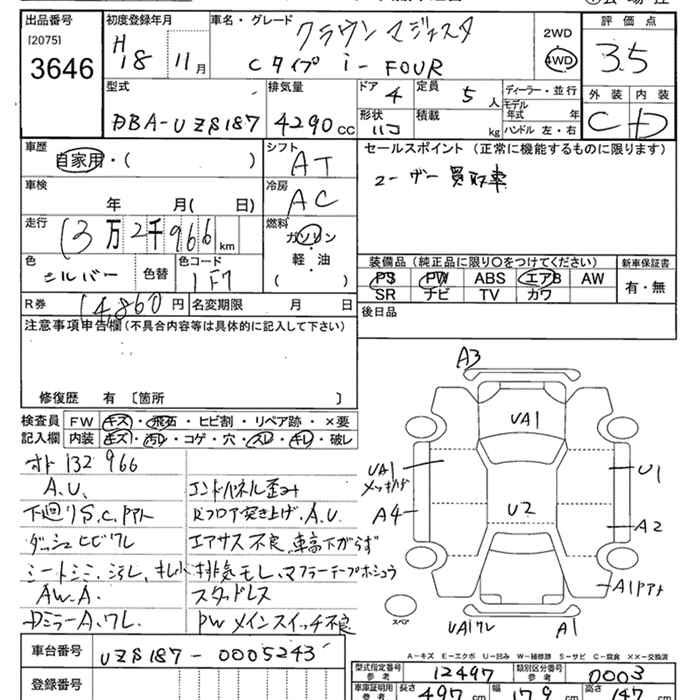 出品番号 初度登録年月 車名・グレード 評価点
[2075] クラウンマジェスタ 2WD
3646 H18 11月 Cタイプ i-FOUR 4WD 3.5
外装 内装
型式 排気量 ドア 4 定員 5人 ディーラー・並行
モデル年式 年
DBA-UZS187 4290cc 形状 積載 kg ハンドル 左・右 C D
車歴 シフト セールスポイント(正常に機能するものに限ります)
自家用・( ) AT ユーザー買取車
車検 冷房
年 月( 日) AC
走行 燃料
13万2千966km ガソリン
軽・油
( )
装備品(純正品に限り〇をつけてください) 新車保証書
色 シルバー 色替 色コード 1F7
PS PW ABS エアB AW 有・無
SR ナビ TV カワ
R券 14,860円 名変期限 月 日
後日品
注意事項申告欄(不具合内容等は具体的に記入して下さい)
修復歴 有 〔箇所 〕
検査員 FW キズ・飛石・ヒビ割・リペア跡・×要
記入欄 内装 キズ・汚レ・コゲ・穴・スレ・キレ・破レ
オド132966
A.U. エンドパネル歪み
下廻りS.C.Pアト Rフロア突き上げ.A.U
ダッシュヒビワレ エアサス不良、車高下がらず
シートシミ、ヨゴレ、キレ小 排気モレ、マフラーテープホシュウ
AW.A. スタッドレス
Dミラー A.ワレ PWメインスイッチ不良
A3
UA1
UA1 U1
メッキハゲ
A4 U2 A2
A1Pアト
スペア
UA1ワレ A1
A-キズ E-エクボ U-凹み W-補修跡 S-サビ C-腐食 XX-交換済
車台番号 UZS187-0005243
型式指定番号 参考 12497 類別区分番号 参考 0003
登録番号
車庫証明用 参考 長さ 497cm 幅 179cm 高さ 147cm